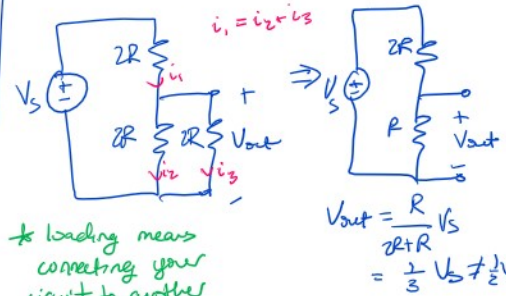 i₁ = i₂ + i₃
2R
i₁
V_S
±
2R
2R
+
V_out
-
i₂
i₃
⇒
V_S
±
2R
R
+
V_out
-
V_out = R/(2R+R) V_S
= 1/3 V_S ≠ 1/2 V
* loading means
connecting your
circuit to another